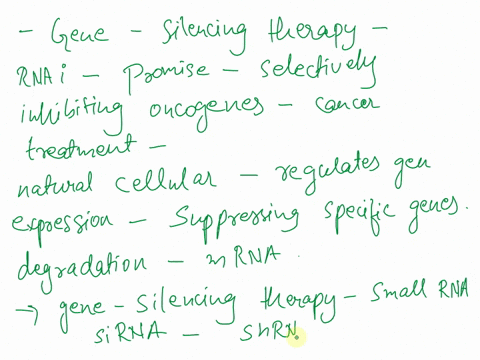 - Gene - Silencing therapy -
RNAi - Promise - selectively
inhibiting oncogenes - cancer
treatment -
natural cellular - regulates gen
expression - Suppressing specific genes.
degradation - mRNA.
→ gene - Silencing therapy - Small RNA
siRNA - shRN